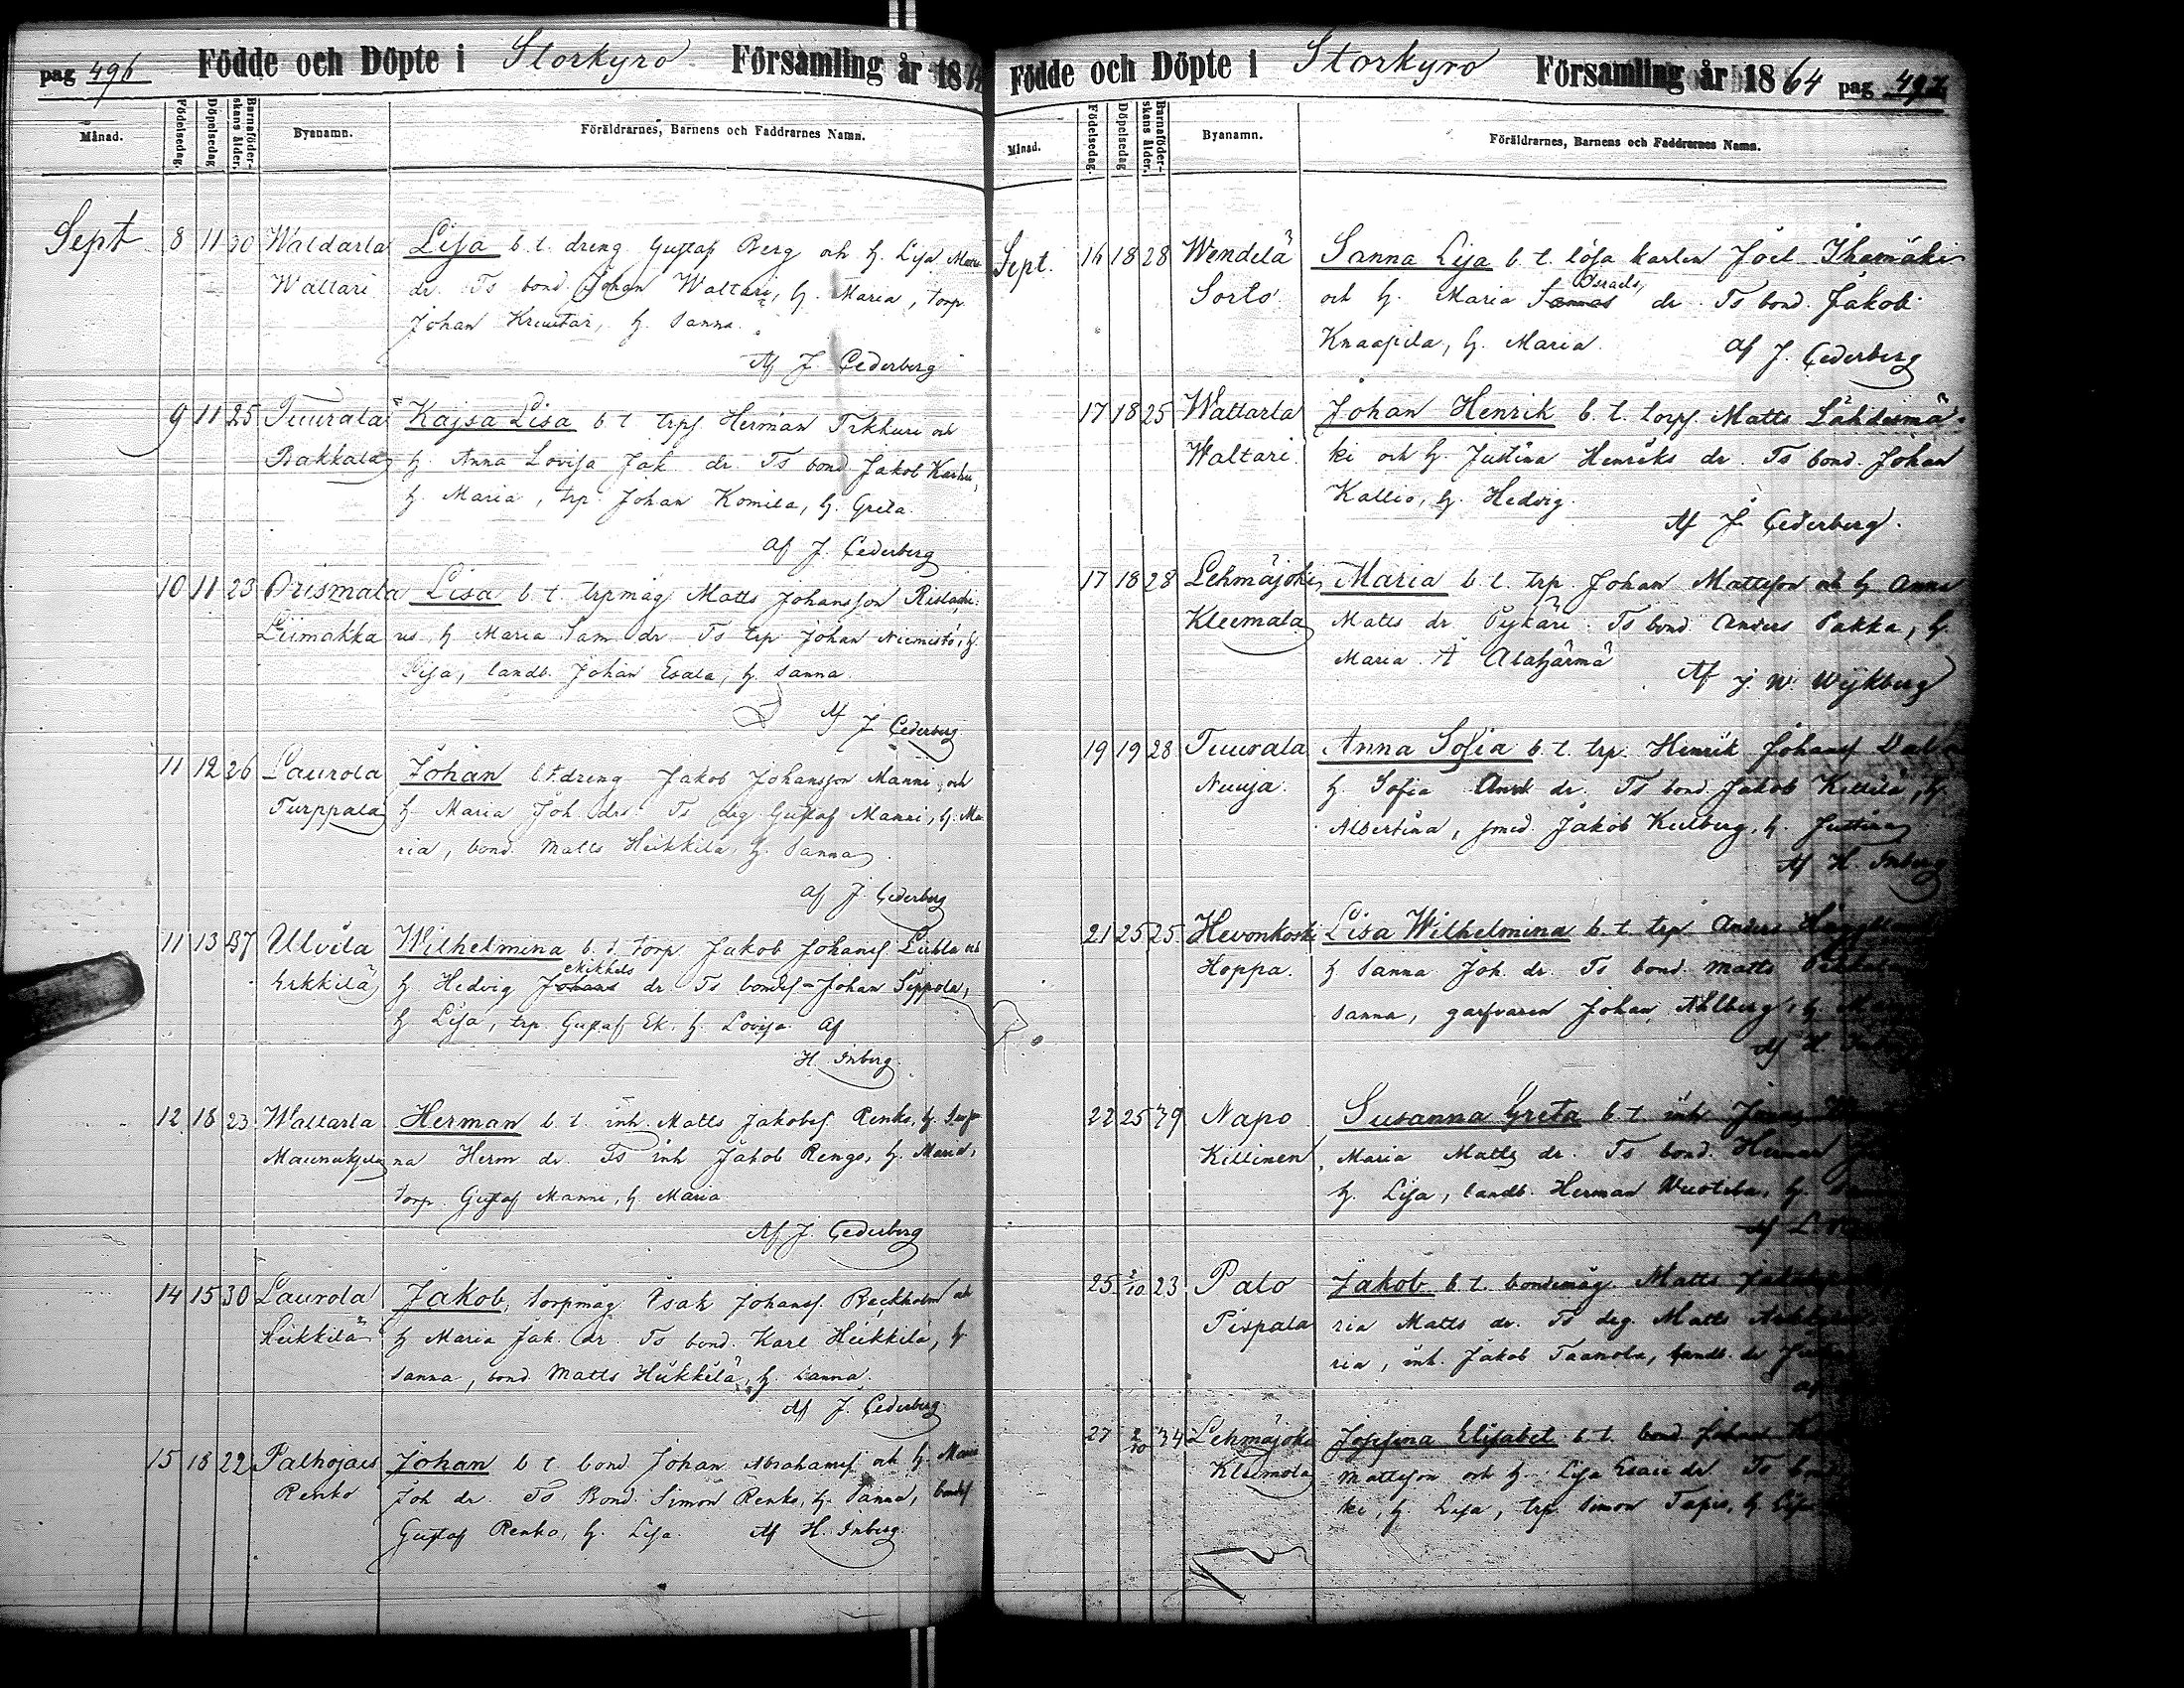 pag 496 Födde och Döpte i Storkyro Församling år 1864
Månad. Födelsedag. Döpelsedag Barnaföderskans ålder. Byanamn. Föräldrarnes, Barnens och Faddrarnes Namn.
Sept 8 11 30 Waldarla Lisa b. t. dreng Gustaf Berg och h. Lisa
Waltari dr. Ts bond. Johan Waltari, h. Maria, torp.
Johan h. Sanna.
Af J. Cederberg
9 11 25 Tuurala Kajsa Lisa b t trps Herman och
h. Anna Lovisa Jak dr. Ts bond Jakob Karhu,
h. Maria, trp. Johan Komila, h. Greta.
af J. Cederberg
10 11 23 Orismala Lisa b. t. trpmåg Matts Johansson
Liimakka h Maria Sam dr. Ts trp Johan Niemistö, h.
Lisa, landb. Johan Esala, h. Sanna.
Af J Cederberg
11 12 26 Laurola Johan b. t dreng Jakob Johansson Manni, och
Turppala h Maria Joh drs Ts drg Gustaf Manni, h. Ma
ria, bond. Matts Heikkilä, h. Sanna.
af J. Cederberg
11 13 37 Ulvila Wilhelmina b. t. torp Jakob Johanss. och
Erkkilä h Hedvig Johans Mikkels dr Ts bondes. Johan Seppola,
h Lisa, trp. Gustaf Ek. h. Lovisa. af
H. Inberg.
12 18 23 Waltarla Herman b. t. inh. Matts Jakobss. Renko, h.
na Herm dr. Ts inh Jakob Rengo, h. Maria,
torp. Gustaf Manni, h. Maria
Af J. Cederberg
14 15 30 Laurola Jakob, torpmåg Isak Johanss. Beckholm och
Heikkilä h Maria Jak dr. Ts bond. Karl Heikkilä, h
Sanna, bond Matts Heikkilä, h. Sanna.
Af J. Cederberg
15 18 22 Palhojais Johan b t bond Johan Abrahamss och h. Maria
Renko Joh dr. Ts Bond. Simon Renko, h. Sanna, bondes
Gustaf Renko, h. Lisa. Af H. Inberg.
Födde och Döpte i Storkyro Församling år 1864 pag 497
Månad. Födelsedag. Döpelsedag Barnaföderskans ålder. Byanamn. Föräldrarnes, Barnens och Faddrarnes Namn.
Sept. 16 18 28 Wendelä Sanna Lisa b. t. lösa karlen Joel Ihamäki
Sorto och h. Maria Israels dr. Ts bond. Jakob
Knaapila, h. Maria. Af J. Cederberg
17 18 25 Waltarla Johan Henrik b. t. torps. Matts Lähdesmä-
Waltari. ki och h. Justina Henriks dr. Ts bond. Johan
Kallio, h. Hedvig.
Af J. Cederberg.
17 18 28 Lehmäjoki Maria b. t. trp. Johan Mattsson och h Anna
Kleemola Matts dr. Pykäri. Ts bond. Anders Pakka, h.
Maria. Å Alahärmä Af J. W. Wijkberg
19 19 28 Tuurala Anna Sofia b. t. trp. Henrik Johanss
Nuuja. h. Sofia And dr. Ts bond. Jakob Killilä, h.
Albertina, smed. Jakob Kulberg, h. Justina
Af H. Inberg
21 25 25 Hevonkoski Lisa Wilhelmina b. t. trp Anders
Hoppa. h Sanna Joh. dr. Ts bond. Matts
Sanna, garfvaren Johan Ahlberg, h.
Af H.
22 25 39 Napo Susanna Greta b. t. inh
Killinen Maria Matts dr. Ts bond. Herman
h. Lisa, landb. Herman h.
Af
25 2/10 23 Palo Jakob b. t. bondemåg. Matts
Pispala ria Matts dr. Ts drg. Matts
ria, inh. Jakob Taanola, landb. dr
Af
27 2/10 34 Lehmäjoki Josefina Elisabet b. t. bond Johan
Kleemola Mattsson och h. Lisa Esaie dr Ts
ki, h. Lisa, trp. Simon Tapio, h.